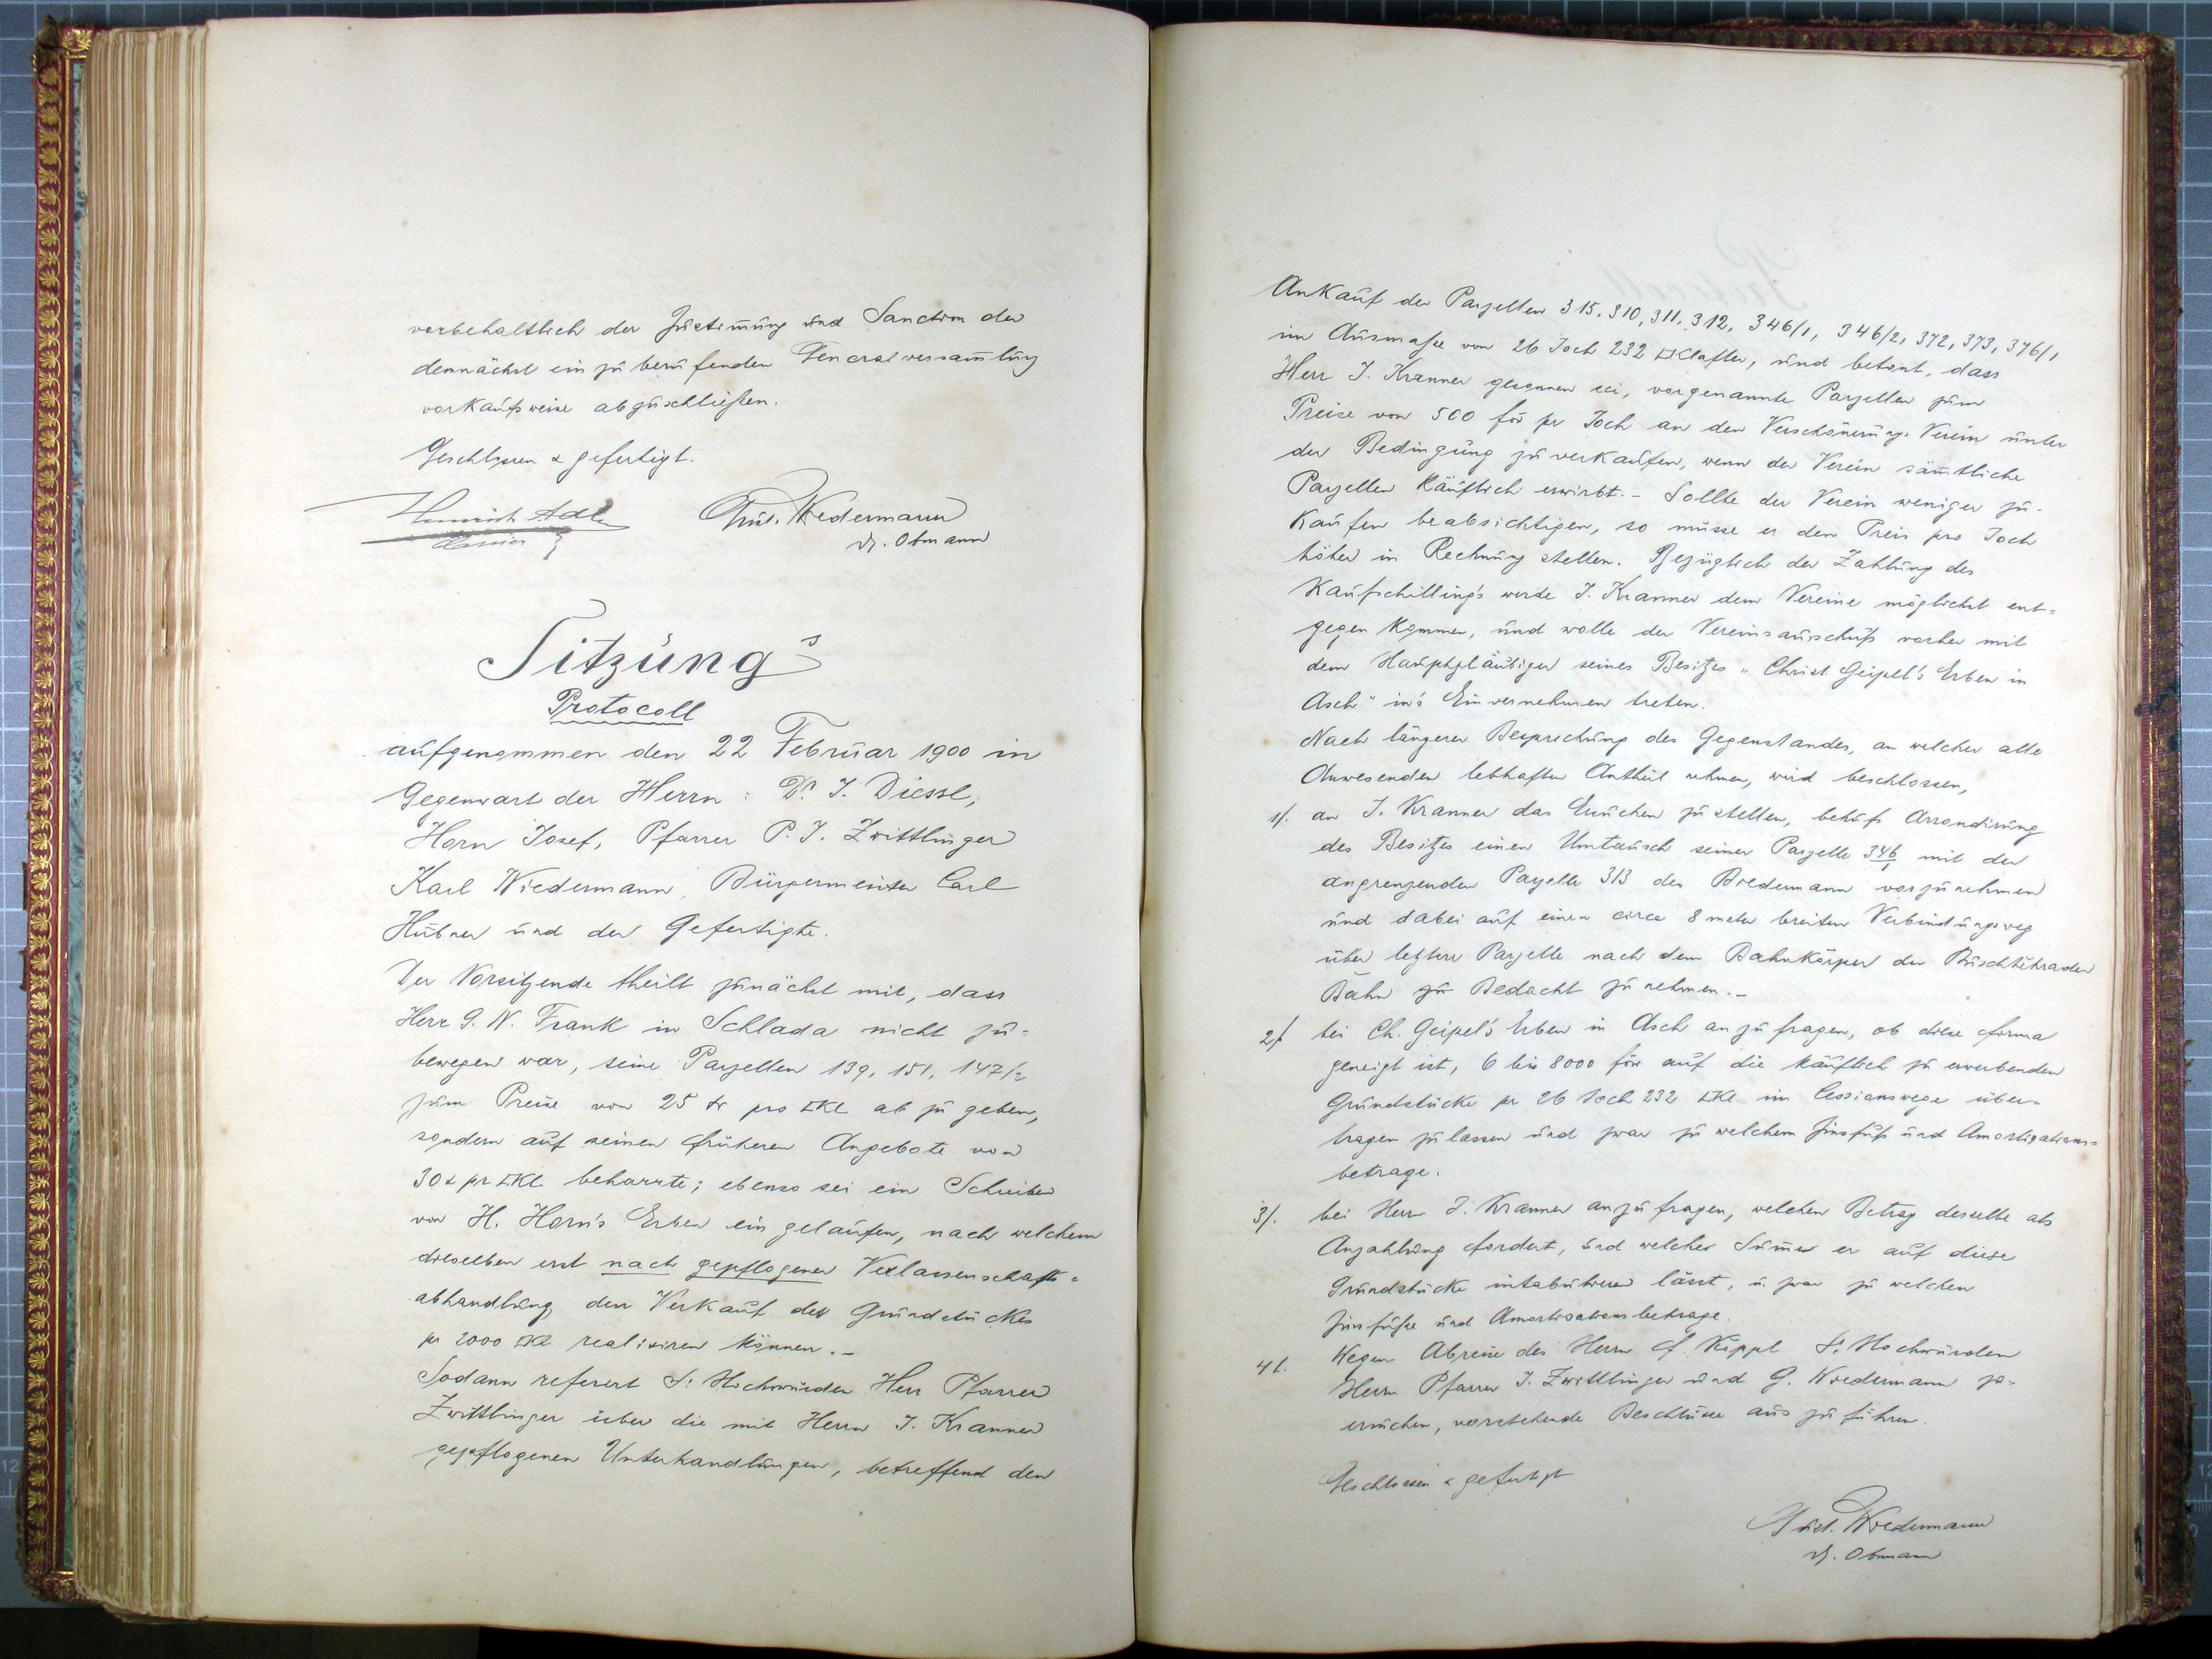 vorbehaltlich der Zustim̄ung und Sanction der
demnächst ein zu berufenden Generalversam̄lung
vorkaufsweise abzuschließen.
Geschlossen & gefertigt.
Heinrich Adler
Gust. Wiedermann
dz. Obmann
Sitzungs
Protocoll
aufgenommen den 22 Februar 1900 in
Gegenwart der Herrn: Dr. J. Diessl,
Horn Josef, Pfarrer P. J. Zwittlinger
Karl Wiedermann, Bürgermeister Carl
Hübner und der Gefertigte.
Der Vorsitzende theilt zunächst mit, dass
Herr G. N. Frank in Schlada nicht zu-
bewegen war, seine Parzellen 139, 151, 147/2
zum Preise von 25 kr pro □Kl ab zu geben,
sondern auf seinen früheren Angebote von
30 x pr □Kl beharrte; ebenso sei ein Schreiben
von H. Horn's Erben ein gelaufen, nach welchem
dieselben erst nach gepflogener Verlassenschafts=
abhandlung den Verkauf des Grundstückes
pr 2000 □Kl realisiren können.–
Sodann referert Sr Hochwürden Herr Pfarrer
Zwittlinger über die mit Herrn J. Kranner
gepflogenen Unterhandlungen, betreffend den
Ankauf der Parzellen 315, 310, 311, 312, 346/1, 346/2, 372, 373, 376/1
im Ausmaße von 26 Joch 232 □Klafter, und betont, dass
Herr J. Kranner gesonnen sei, vorgenannte Parzellen zum
Preise von 500 för pr Joch an den Verschönerungs Verein unter
der Bedingung zu verkaufen, wenn der Verein säm̄tliche
Parzellen käuflich erwirbt.– Sollte der Verein weniger zu-
kaufen beabsichtigen, so müsse er den Preis pro Joch
höher in Rechnung stellen. Bezüglich der Zahlung des
Kaufschilling's werde J. Kranner dem Vereine möglichst ent=
gegen kommen, und wolle der Vereinsausschuß vorher mit
dem Hauptgläubiger seines Besitzes „Christ. Geipel's Erben in
Asch" in's Einvernehmen treten.
Nach längerer Besprechung des Gegenstandes, an welcher alle
Anwesenden lebhaften Antheil nehmen, wird beschlossen,
1/. an J. Kranner das Ersuchen zu stellen, behufs Arrondirung
des Besitzes einen Umtausch seiner Parzelle 346/1 mit der
angrenzenden Parzelle 313 des Biedermann vorzunehmen
und dabei auf einen circa 8 meter breiten Verbindungsweg
über letztere Parzelle nach dem Bahnkörper der Buschtěhrader
Bahn zu Bedacht zu nehmen.–
2/. bei Ch. Geipel's Erben in Asch an zu fragen, ob diese Firma
geneigt ist, 6 bis 8000 för auf die käuflich zu erwerbenden
Grundstücke pr 26 Joch 232 □Kl. im Cessionswege über=
tragen zu lassen und zwar zu welchem Zinsfuß und Amortisations=
betrage.
3/. bei Herr J. Kranner anzufragen, welchen Betrag derselbe als
Anzahlung fordert, und welche Sum̄e er auf diese
Grundstücke intabuliren lässt, u. zwar zu welchen
Zinsfuße und Amortisationsbetrage.
4/. Wegen Abreise des Herrn F. Köppl Sr Hochwürden
Herrn Pfarrer J. Zwittlinger und G. Wiedermann zu-
ersuchen, vorstehende Beschlüsse aus zu führen.
Geschlossen & gefertigt
Gust. Wiedermann
dz. Obmann